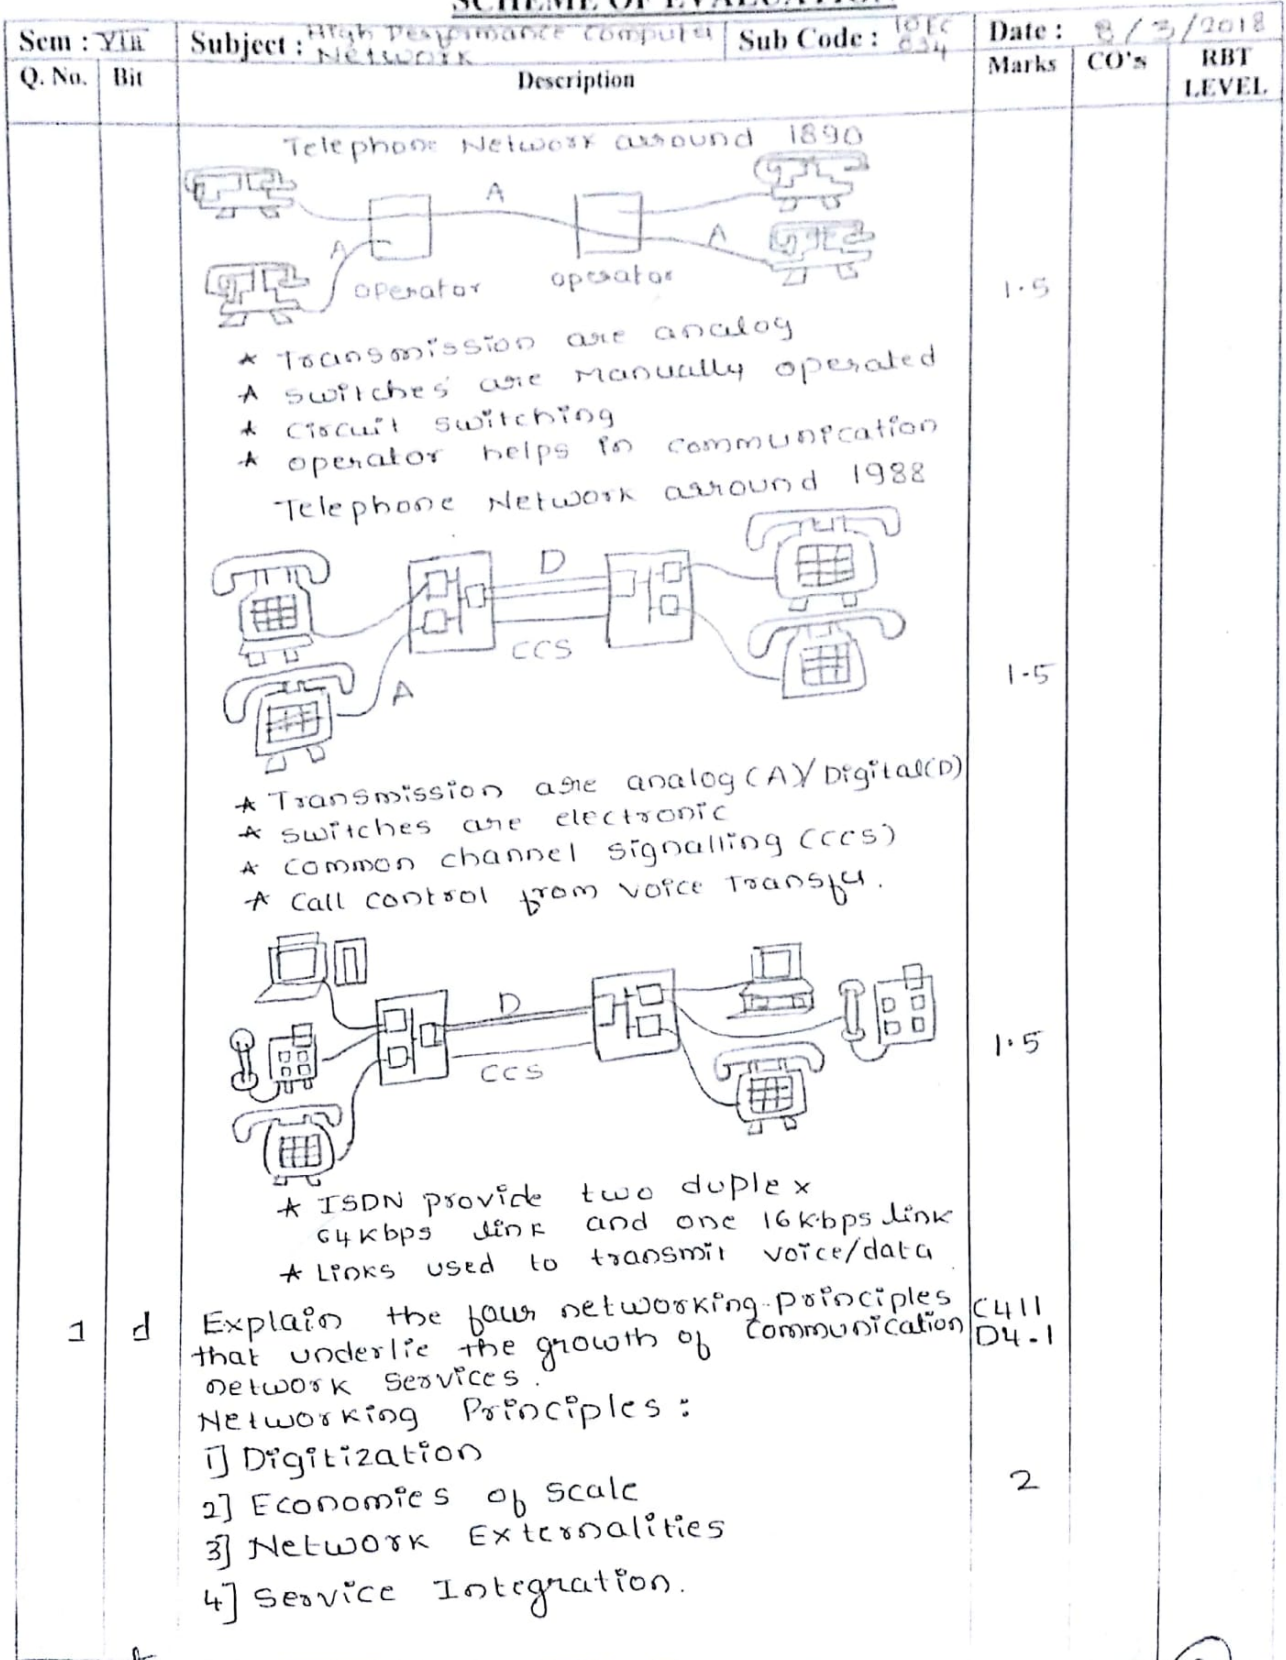 SCHEME OF EVALUATION
Sem : VIII Subject : High Performance Computer Network Sub Code : 10EC834 Date : 8/3/2018
Q. No. Bit Description Marks CO's RBT LEVEL
Telephone Network arround 1890
A
A
A
operator operator
1.5
* Transmission are analog
* switches are Manually operated
* circuit switching
* operator helps in communication
Telephone Network arround 1988
D
CCS
A
1.5
* Transmission are analog (A)/Digital(D)
* switches are electronic
* common channel signalling (ccs)
* Call control from voice Transfer.
D
CCS
1.5
* ISDN provide two duplex
64Kbps link and one 16Kbps link
* Links used to transmit voice/data
1 d Explain the four networking principles C411
that underlie the growth of Communication D4.1
network services.
Networking Principles :
1] Digitization
2] Economies of scale 2
3] Network Externalities
4] Service Integration.